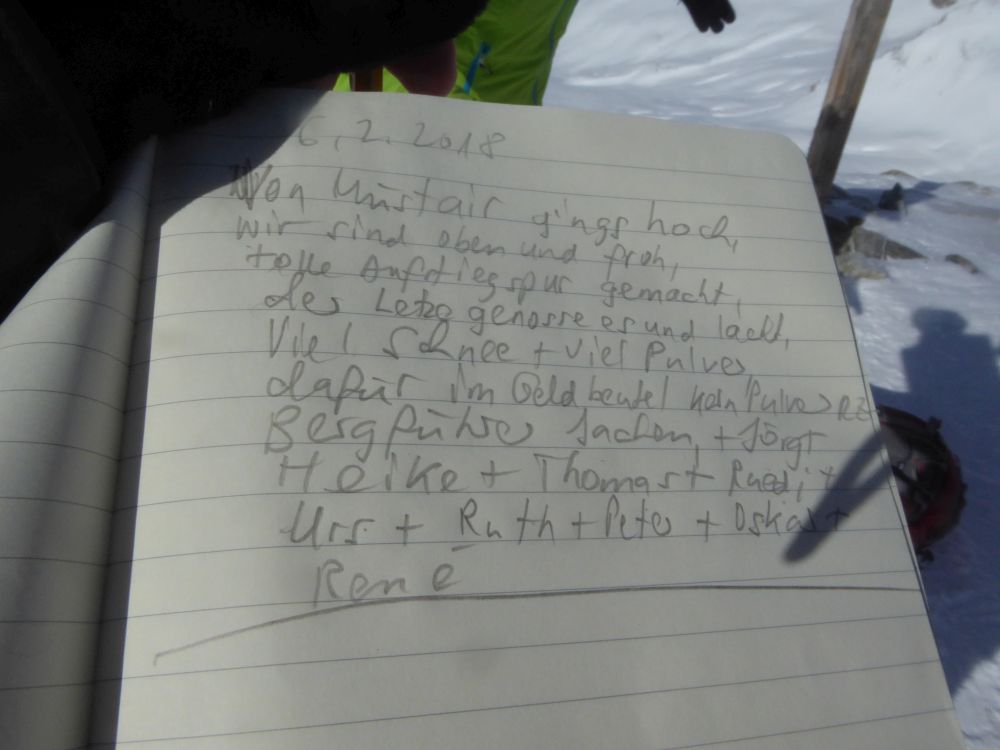 6.2.2018
Von Müstair gings hoch,
wir sind oben und froh,
tolle Aufstiegspur gemacht,
der Letze genosse es und lacht,
Viel Schnee + viel Pulver
dafür im Geldbeutel kein Pulver
Bergführer Jachen + Jörg +
Heike + Thomas + Ruedi +
Urs + Ruth + Peter + Oskar +
René